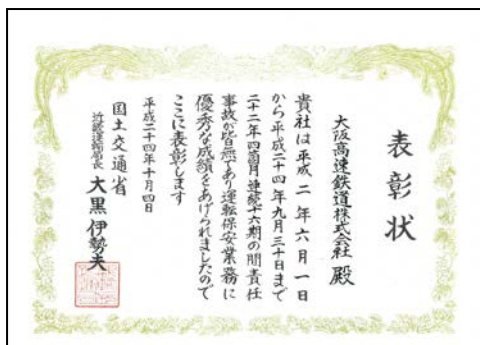 表彰状
大阪高速鉄道株式会社 殿
貴社は平成二年六月一日
から平成二十四年九月三十日まで
二十二年四箇月連続十六期の間責任
事故が皆無であり運転保安業務に
優秀な成績をあげられましたので
ここに表彰します
平成二十四年十月四日
国土交通省
近畿運輸局長 大黒伊勢夫